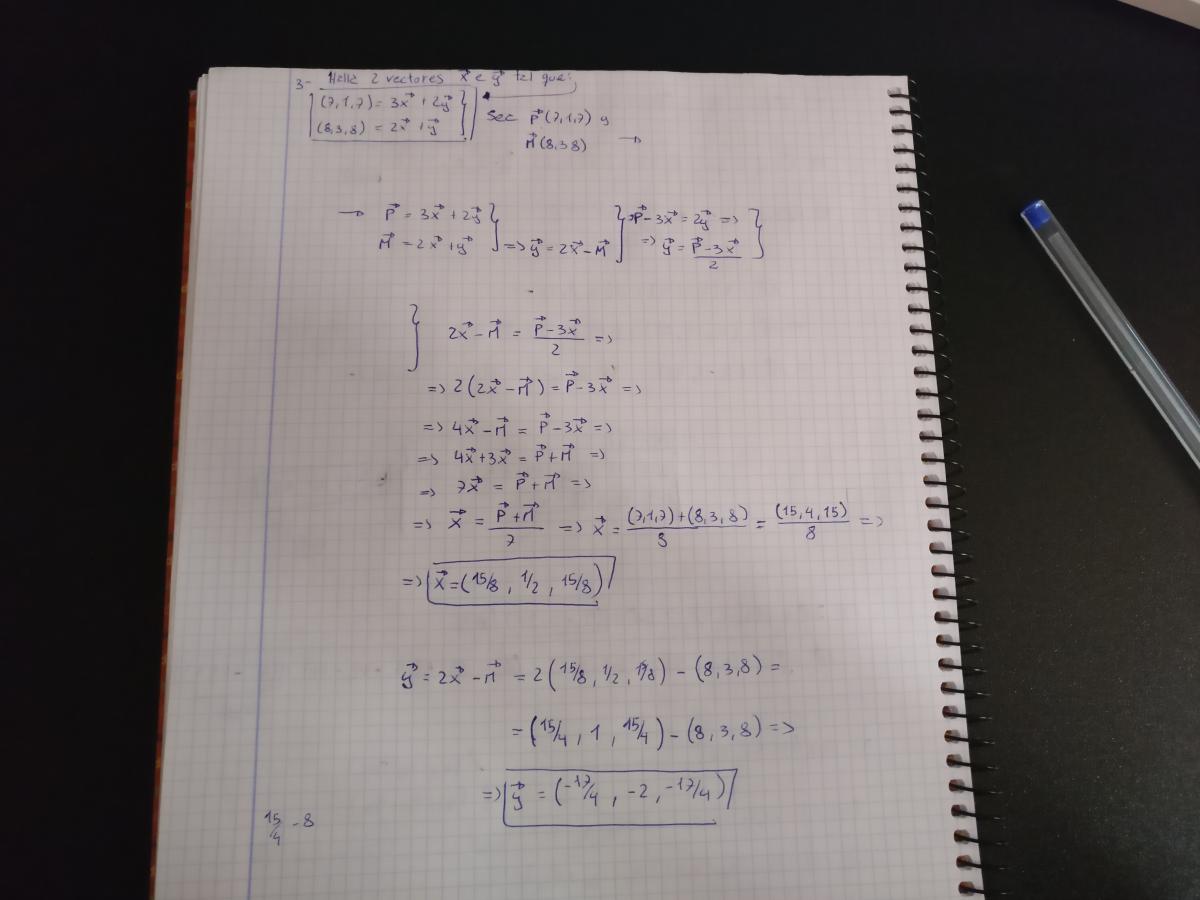 3- Halla 2 vectores x⃗ e y⃗ tal que:
(7,1,7) = 3x⃗ + 2y⃗
(8,3,8) = 2x⃗ + y⃗
Sea P⃗(7,1,7) y
M⃗(8,3,8) →
→ P⃗ = 3x⃗ + 2y⃗
M⃗ = 2x⃗ + y⃗ } => y⃗ = 2x⃗ - M⃗
} => P⃗ - 3x⃗ = 2y⃗ =>
=> y⃗ = (P⃗ - 3x⃗)/2 }
} 2x⃗ - M⃗ = (P⃗ - 3x⃗)/2 =>
=> 2(2x⃗ - M⃗) = P⃗ - 3x⃗ =>
=> 4x⃗ - M⃗ = P⃗ - 3x⃗ =>
=> 4x⃗ + 3x⃗ = P⃗ + M⃗ =>
=> 7x⃗ = P⃗ + M⃗ =>
=> x⃗ = (P⃗ + M⃗)/7 => x⃗ = ((7,1,7) + (8,3,8))/8 = (15,4,15)/8 =>
=> x⃗ = (15/8, 1/2, 15/8)
y⃗ = 2x⃗ - M⃗ = 2(15/8, 1/2, 15/8) - (8,3,8) =
= (15/4, 1, 15/4) - (8,3,8) =>
=> y⃗ = (-17/4, -2, -17/4)
15/4 - 8